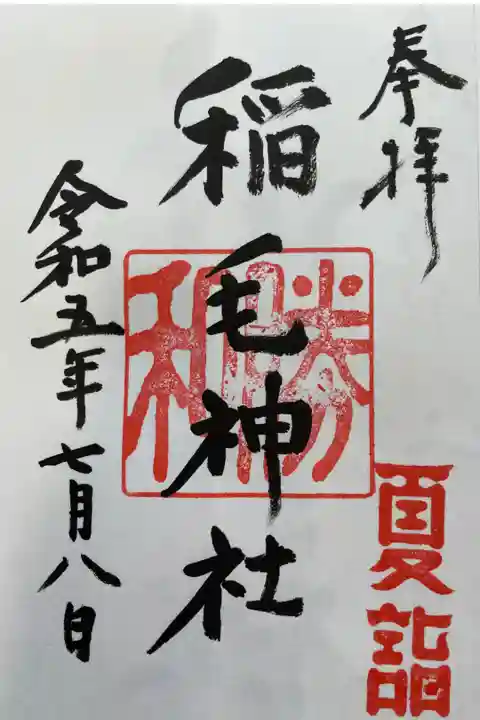 奉拝
夏詣
稲毛神社
勝和
令和五年七月八日